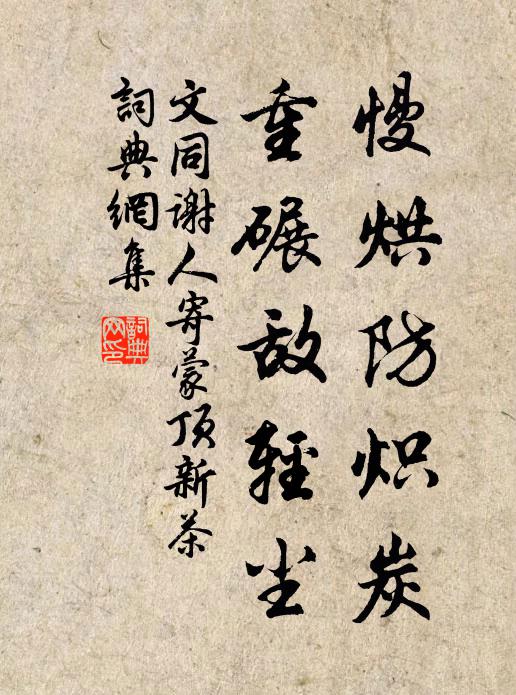 慢烘防炽炭
重碾敌輕尘
文同谢人寄蒙顶新茶
詞典網集
詞典网印